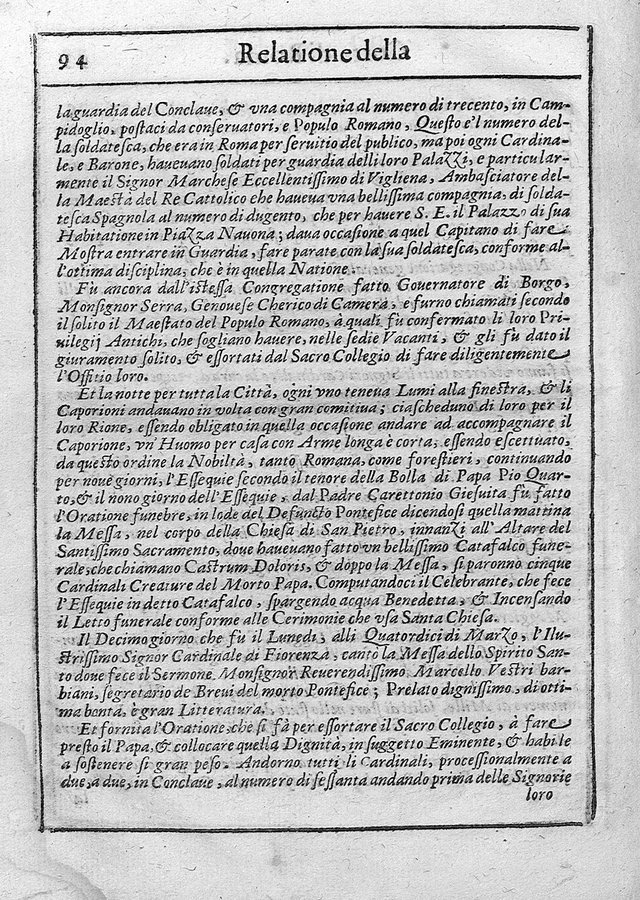 94
Relatione della
la guardia del Conclaue, & vna compagnia al numero di trecento, in Cam-
pidoglio, postaci da conseruatori, e Populo Romano, Questo e'l numero del-
la soldatesca, che era in Roma per seruitio del publico, ma poi ogni Cardina-
le, e Barone, haueuano soldati per guardia delli loro Palazzi, e particular-
mente il Signor Marchese Eccellentissimo di Vigliena, Ambasciatore del-
la Maestà del Re Cattolico che haueua vna bellissima compagnia, di solda-
tesca Spagnola al numero di dugento, che per hauere S. E. il Palazzo di sua
Habitatione in Piazza Nauona; daua occasione a quel Capitano di fare
Mostra entrare in Guardia, fare parate con la sua soldatesca, conforme al-
l'ottima disciplina, che è in quella Natione.
Fù ancora dall'istessa Congregatione fatto Gouernatore di Borgo,
Monsignor Serra, Genouese Cherico di Camera, e furno chiamati secondo
il solito il Maestato del Populo Romano, à quali fù confermato li loro Pri-
uilegij Antichi, che sogliano hauere, nelle sedie Vacanti, & gli fù dato il
giuramento solito, & essortati dal Sacro Collegio di fare diligentemente
l'Offitio loro.
Et la notte per tutta la Città, ogni vno teneua Lumi alla finestra, & li
Caporioni andauano in volta con gran comitiua; ciascheduno di loro per il
loro Rione, essendo obligato in quella occasione andare ad accompagnare il
Caporione, vn'Huomo per casa con Arme longa è corta, essendo escettuato,
da questo ordine la Nobiltà, tanto Romana, come forestieri, continuando
per noue giorni, l'Essequie secondo il tenore della Bolla di Papa Pio Quar-
to, & il nono giorno dell'Essequie, dal Padre Carettonio Giesuita fù fatto
l'Oratione funebre, in lode del Defuncto Pontefice dicendosi quella mattina
la Messa, nel corpo della Chiesa di San Pietro, innanzi all'Altare del
Santissimo Sacramento, doue haueuano fatto vn bellissimo Catafalco fune-
rale, che chiamano Castrum Doloris, & doppo la Messa, si paronno cinque
Cardinali Creature del Morto Papa. Computandoci il Celebrante, che fece
l'Essequie in detto Catafalco, spargendo acqua Benedetta, & Incensando
il Letto funerale conforme alle Cerimonie che vsa Santa Chiesa.
Il Decimo giorno che fù il Lunedì, alli Quatordici di Marzo, l'Ilu-
strissimo Signor Cardinale di Fiorenza, cantò la Messa dello Spirito San-
to doue fece il Sermone, Monsignor Reuerendissimo, Marcello Vestri bar-
biani, segretario de Breui del morto Pontefice; Prelato dignissimo, di otti-
ma bontà, è gran Litteratura.
Et fornita l'Oratione, che si fà per essortare il Sacro Collegio, à fare
presto il Papa, & collocare quella Dignità, in suggetto Eminente, & habile
a sostenere si gran peso. Andorno tutti li Cardinali, processionalmente a
due, a due, in Conclaue, al numero di sessanta andando prima delle Signorie
loro